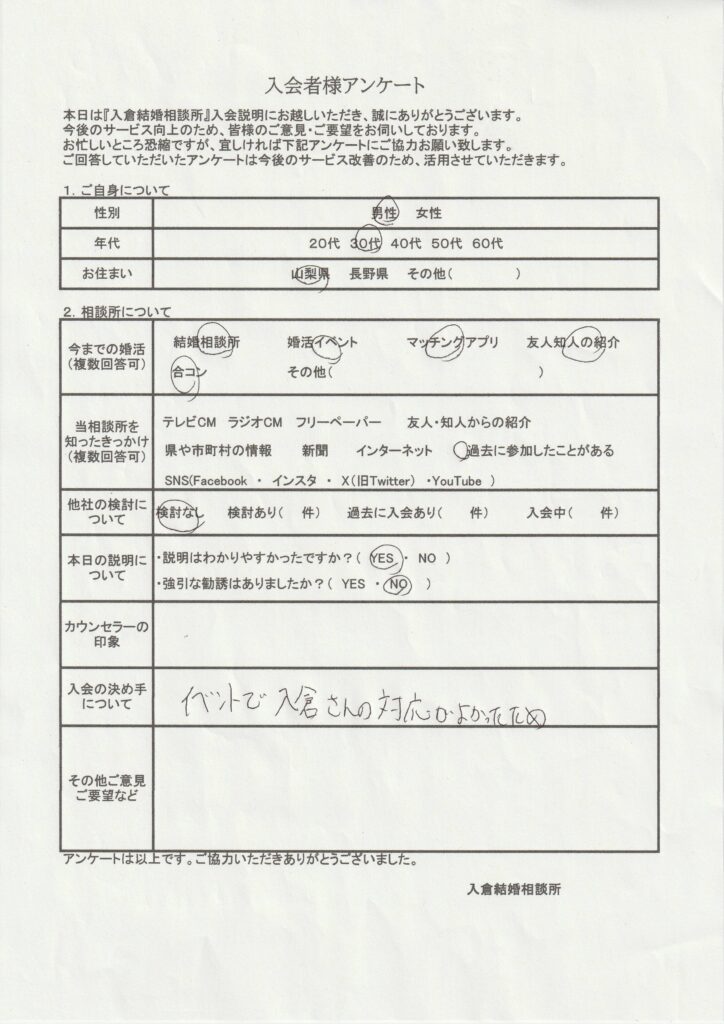 入会者様アンケート
本日は『入倉結婚相談所』入会説明にお越しいただき、誠にありがとうございます。
今後のサービス向上のため、皆様のご意見・ご要望をお伺いしております。
お忙しいところ恐縮ですが、宜しければ下記アンケートにご協力お願い致します。
ご回答していただいたアンケートは今後のサービス改善のため、活用させていただきます。
1. ご自身について
性別 男性 女性
年代 20代 30代 40代 50代 60代
お住まい 山梨県 長野県 その他( )
2. 相談所について
今までの婚活
(複数回答可)
結婚相談所 婚活イベント マッチングアプリ 友人知人の紹介
合コン その他( )
当相談所を
知ったきっかけ
(複数回答可)
テレビCM ラジオCM フリーペーパー 友人・知人からの紹介
県や市町村の情報 新聞 インターネット 過去に参加したことがある
SNS(Facebook ・ インスタ ・ X(旧Twitter) ・YouTube )
他社の検討に
ついて
検討なし 検討あり( 件) 過去に入会あり( 件) 入会中( 件)
本日の説明に
ついて
・説明はわかりやすかったですか?( YES ・ NO )
・強引な勧誘はありましたか?( YES ・ NO )
カウンセラーの
印象
入会の決め手
について
イベントで入倉さんの対応がよかったため
その他ご意見
ご要望など
アンケートは以上です。ご協力いただきありがとうございました。
入倉結婚相談所